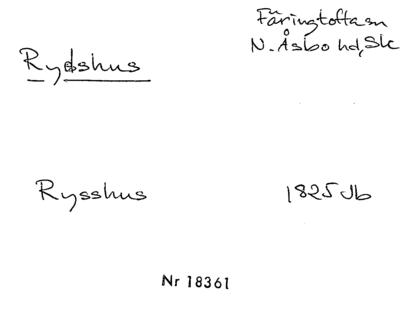 Färingtofta sn
N. Åsbo hd, Sk
Rydshus
Rysshus 1825 Jb
Nr 18361